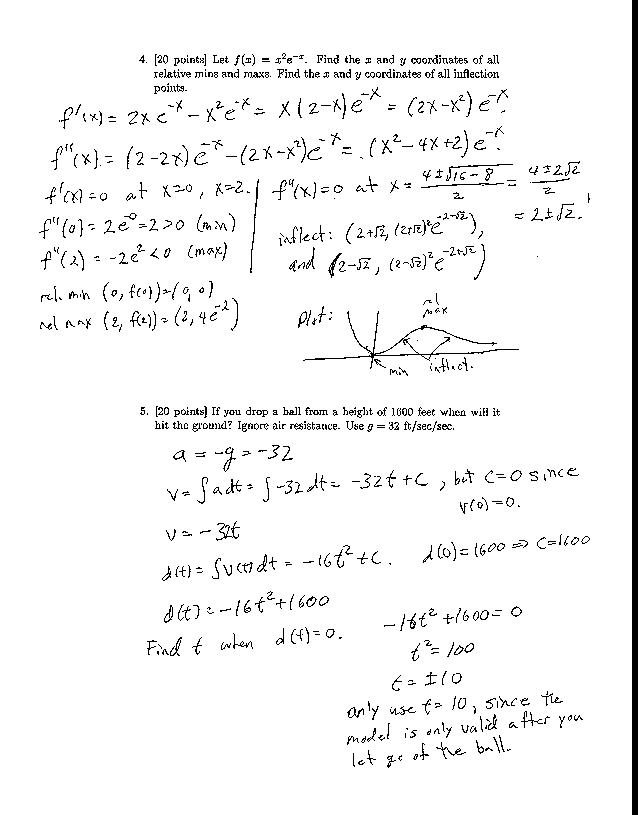 4. [20 points] Let f(x) = x²e⁻ˣ. Find the x and y coordinates of all
relative mins and maxs. Find the x and y coordinates of all inflection
points.
f'(x) = 2xe⁻ˣ - x²e⁻ˣ = x(2-x)e⁻ˣ = (2x-x²)e⁻ˣ.
f''(x) = (2-2x)e⁻ˣ - (2x-x²)e⁻ˣ = (x²-4x+2)e⁻ˣ.
f'(x)=0 at x=0, x=2.
f''(0) = 2e⁻⁰ = 2 > 0 (min)
f''(2) = -2e⁻² < 0 (max)
rel. min (0, f(0)) = (0, 0)
rel max (2, f(2)) = (2, 4e⁻²)
f''(x)=0 at x = (4±√(16-8))/2 = (4±2√2)/2
= 2±√2.
inflect: (2+√2, (2+√2)²e^(-2-√2)),
and (2-√2, (2-√2)²e^(-2+√2))
Plot:
rel
max
min
inflect.
5. [20 points] If you drop a ball from a height of 1600 feet when will it
hit the ground? Ignore air resistance. Use g = 32 ft/sec/sec.
a = -g = -32
v = ∫a dt = ∫-32 dt = -32t + C, but C=0 since
v(0)=0.
v = -32t
d(t) = ∫v(t) dt = -16t² + C. d(0)=1600 ⇒ C=1600
d(t) = -16t² + 1600
Find t when d(t)=0.
-16t² + 1600 = 0
t² = 100
t = ±10
only use t=10, since the
model is only valid after you
let go of the ball.